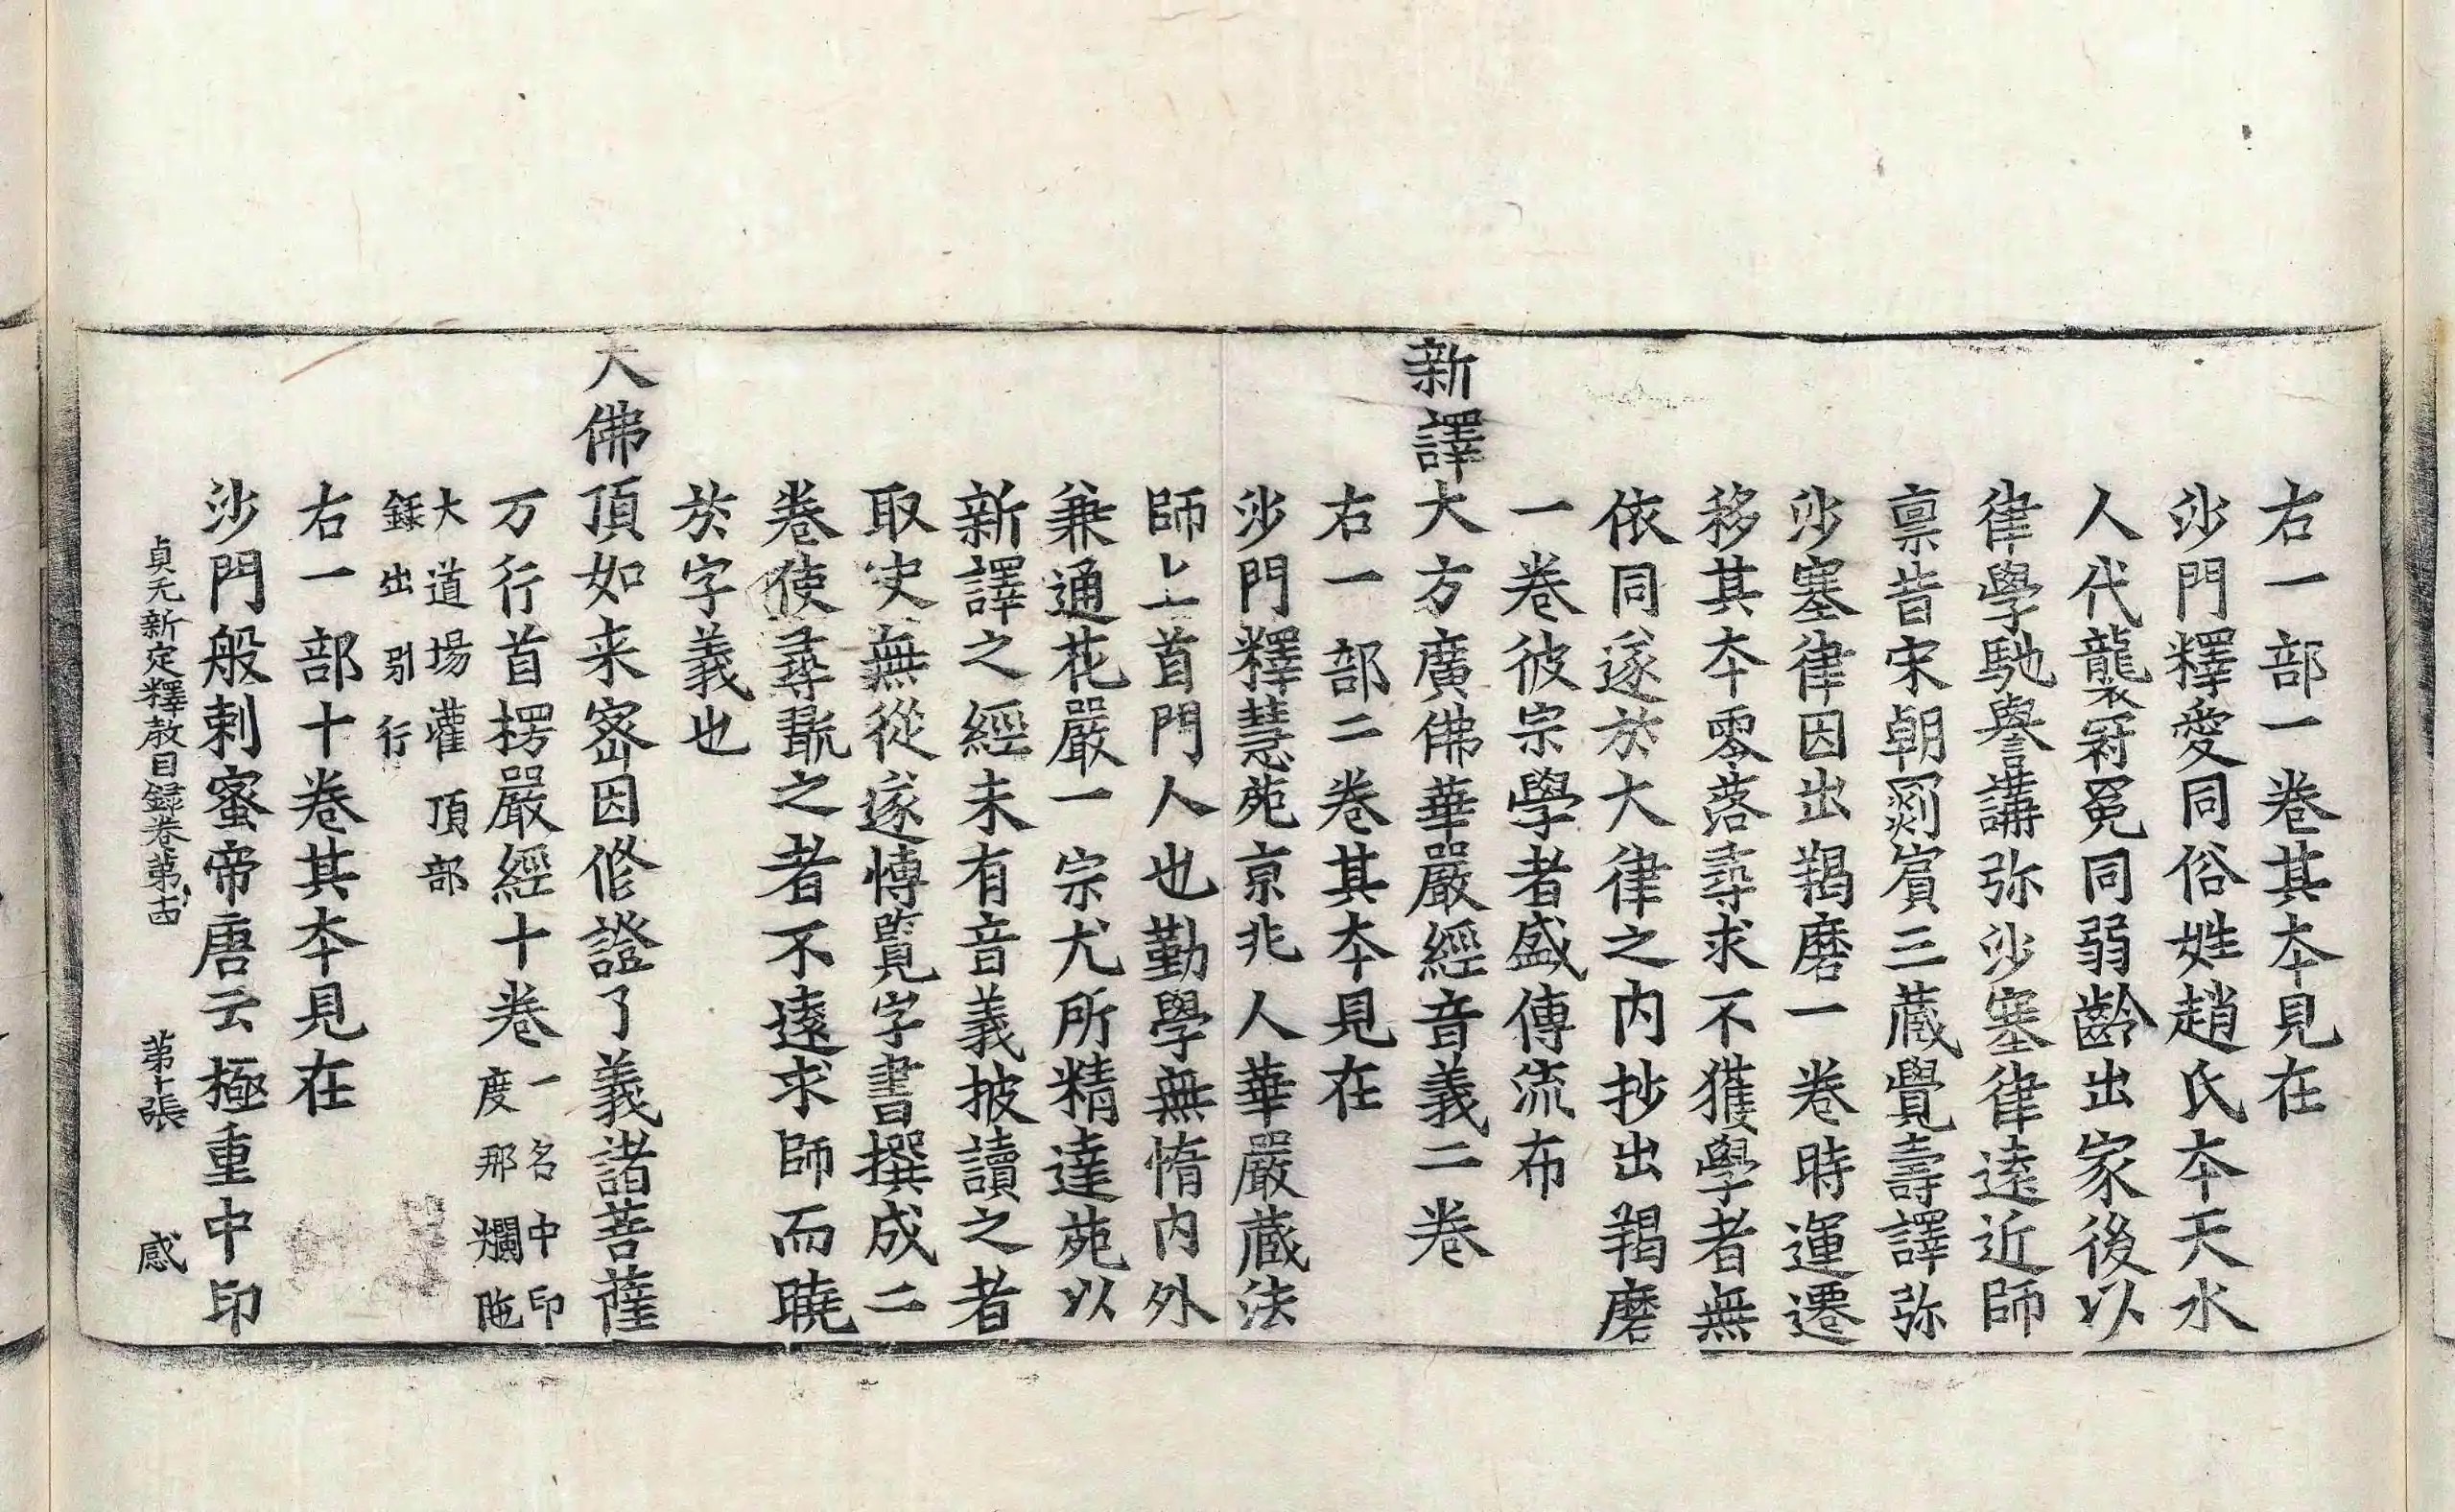 右一部一卷其夲見在
沙門釋愛同俗姓趙氏夲天水
人代襲冠冕同弱齡出家後以
律學馳譽講弥沙塞律遠近師
禀昔宋朝罽賔三蔵覺壽譯弥
沙塞律因出羯磨一卷時運遷
移其夲零落尋求不獲學者無
依同遂於大律之内抄出羯磨
一卷彼宗學者盛傳流布
新譯大方廣佛華嚴經音義二卷
右一部二卷其夲見在
沙門釋慧苑京兆人華嚴蔵法
師上首門人也勤學無惰内外
兼通花嚴一宗尤所精達苑以
新譯之經未有音義披讀之者
取决無從遂博覧字書撰成二
卷使尋翫之者不遠求師而曉
於字義也
大佛頂如来宻因修證了義諸菩薩
万行首楞嚴經十卷一名中印
度那爛陁
大道塲灌頂部
録出別行
右一部十卷其夲見在
沙門般剌蜜帝唐云極重中印
貞元新定釋教目録卷第十四 第十張 感